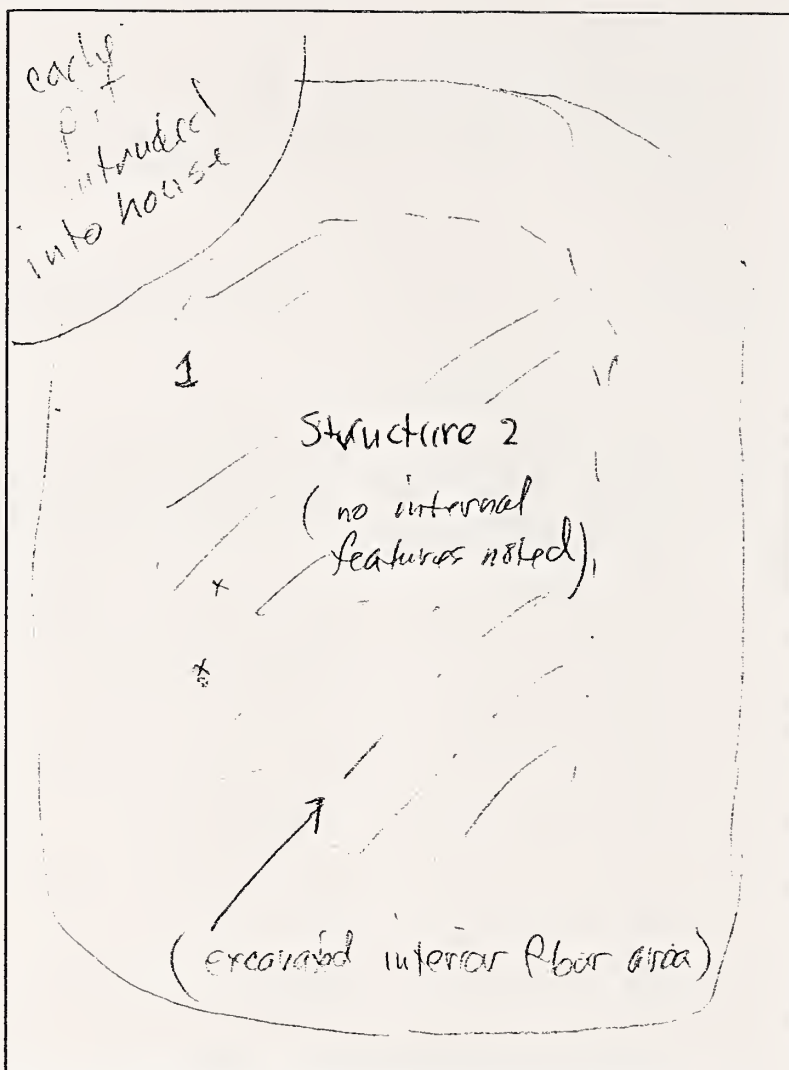 early
pit
intruded
into house
1
Structure 2
(no internal
features noted)
x
x
(excavated interior floor area)